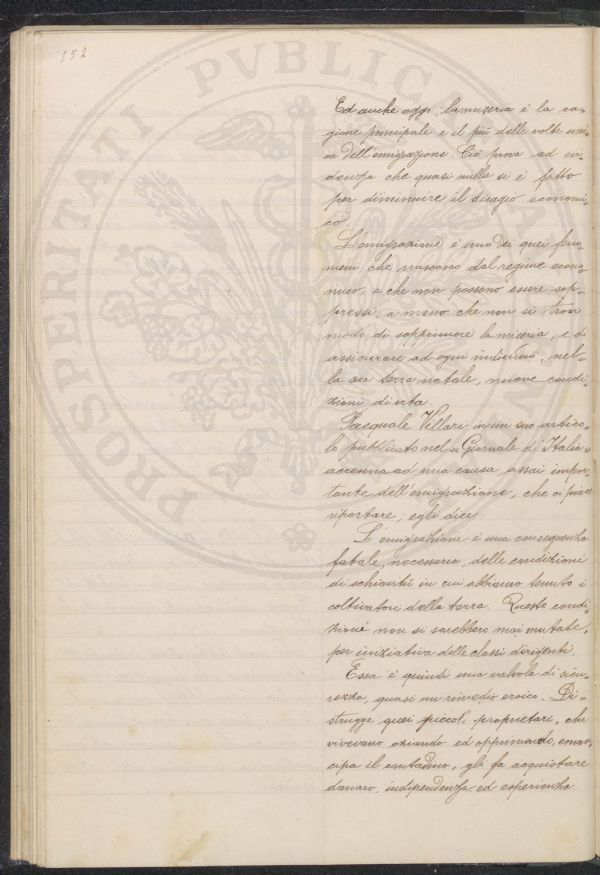 152
PROSPERITATI PVBLICAE
Ed anche oggi, la miseria è la ca-
gione principale e il più delle volte uni-
ca dell'emigrazione. Ciò prova ad evi-
denza che quasi nulla si è fatto
per diminuire il disagio economi-
co.
L'emigrazione è uno dei quei feno-
meni che nascono dal regime econo-
mico, e che non possono essere sop-
pressi, a meno che non si trovi
modo di sopprimere la miseria, e di
assicurare ad ogni individuo, nel-
la sua terra natale, nuove condi-
zioni di vita.
Pasquale Villari in un suo artico-
lo pubblicato nel "Giornale d'Italia"
accenna ad una causa, assai impor
tante dell'emigrazione, che ci piace
riportare; egli dice:
L'emigrazione è una conseguenza
fatale, necessaria, delle condizioni
di schiavitù in cui abbiamo tenuto i
coltivatori della terra. Queste condi-
zioni non si sarebbero mai mutate,
per iniziativa delle classi dirigenti.
Essa è quindi una valvola di sicu-
rezza, quasi un rimedio eroico. Di-
strugge quei piccoli proprietari, che
vivevano oziando ed opprimendo, eman-
cipa il contadino, gli fa acquistare
danaro, indipendenza ed esperienza.